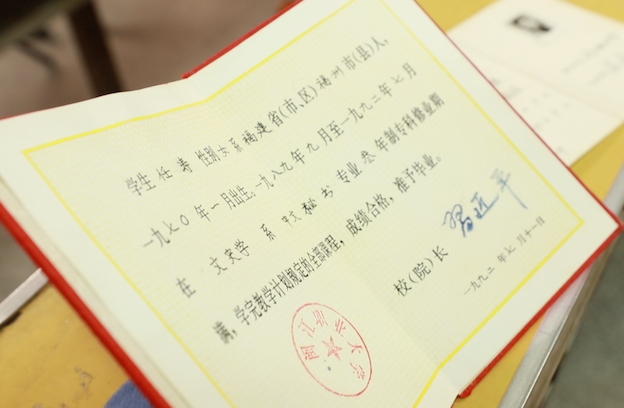 学生任寿 性别女系福建省(市、区)福州市(县)人,
一九七〇年一月出生。一九八九年九月至一九九二年七月
在 文史学 系 中文秘书 专业 叁 年制专科修业期
满,学完教学计划规定的全部课程,成绩合格,准予毕业。
校(院)长 习近平
一九九二年七月十一日
闽江职业大学